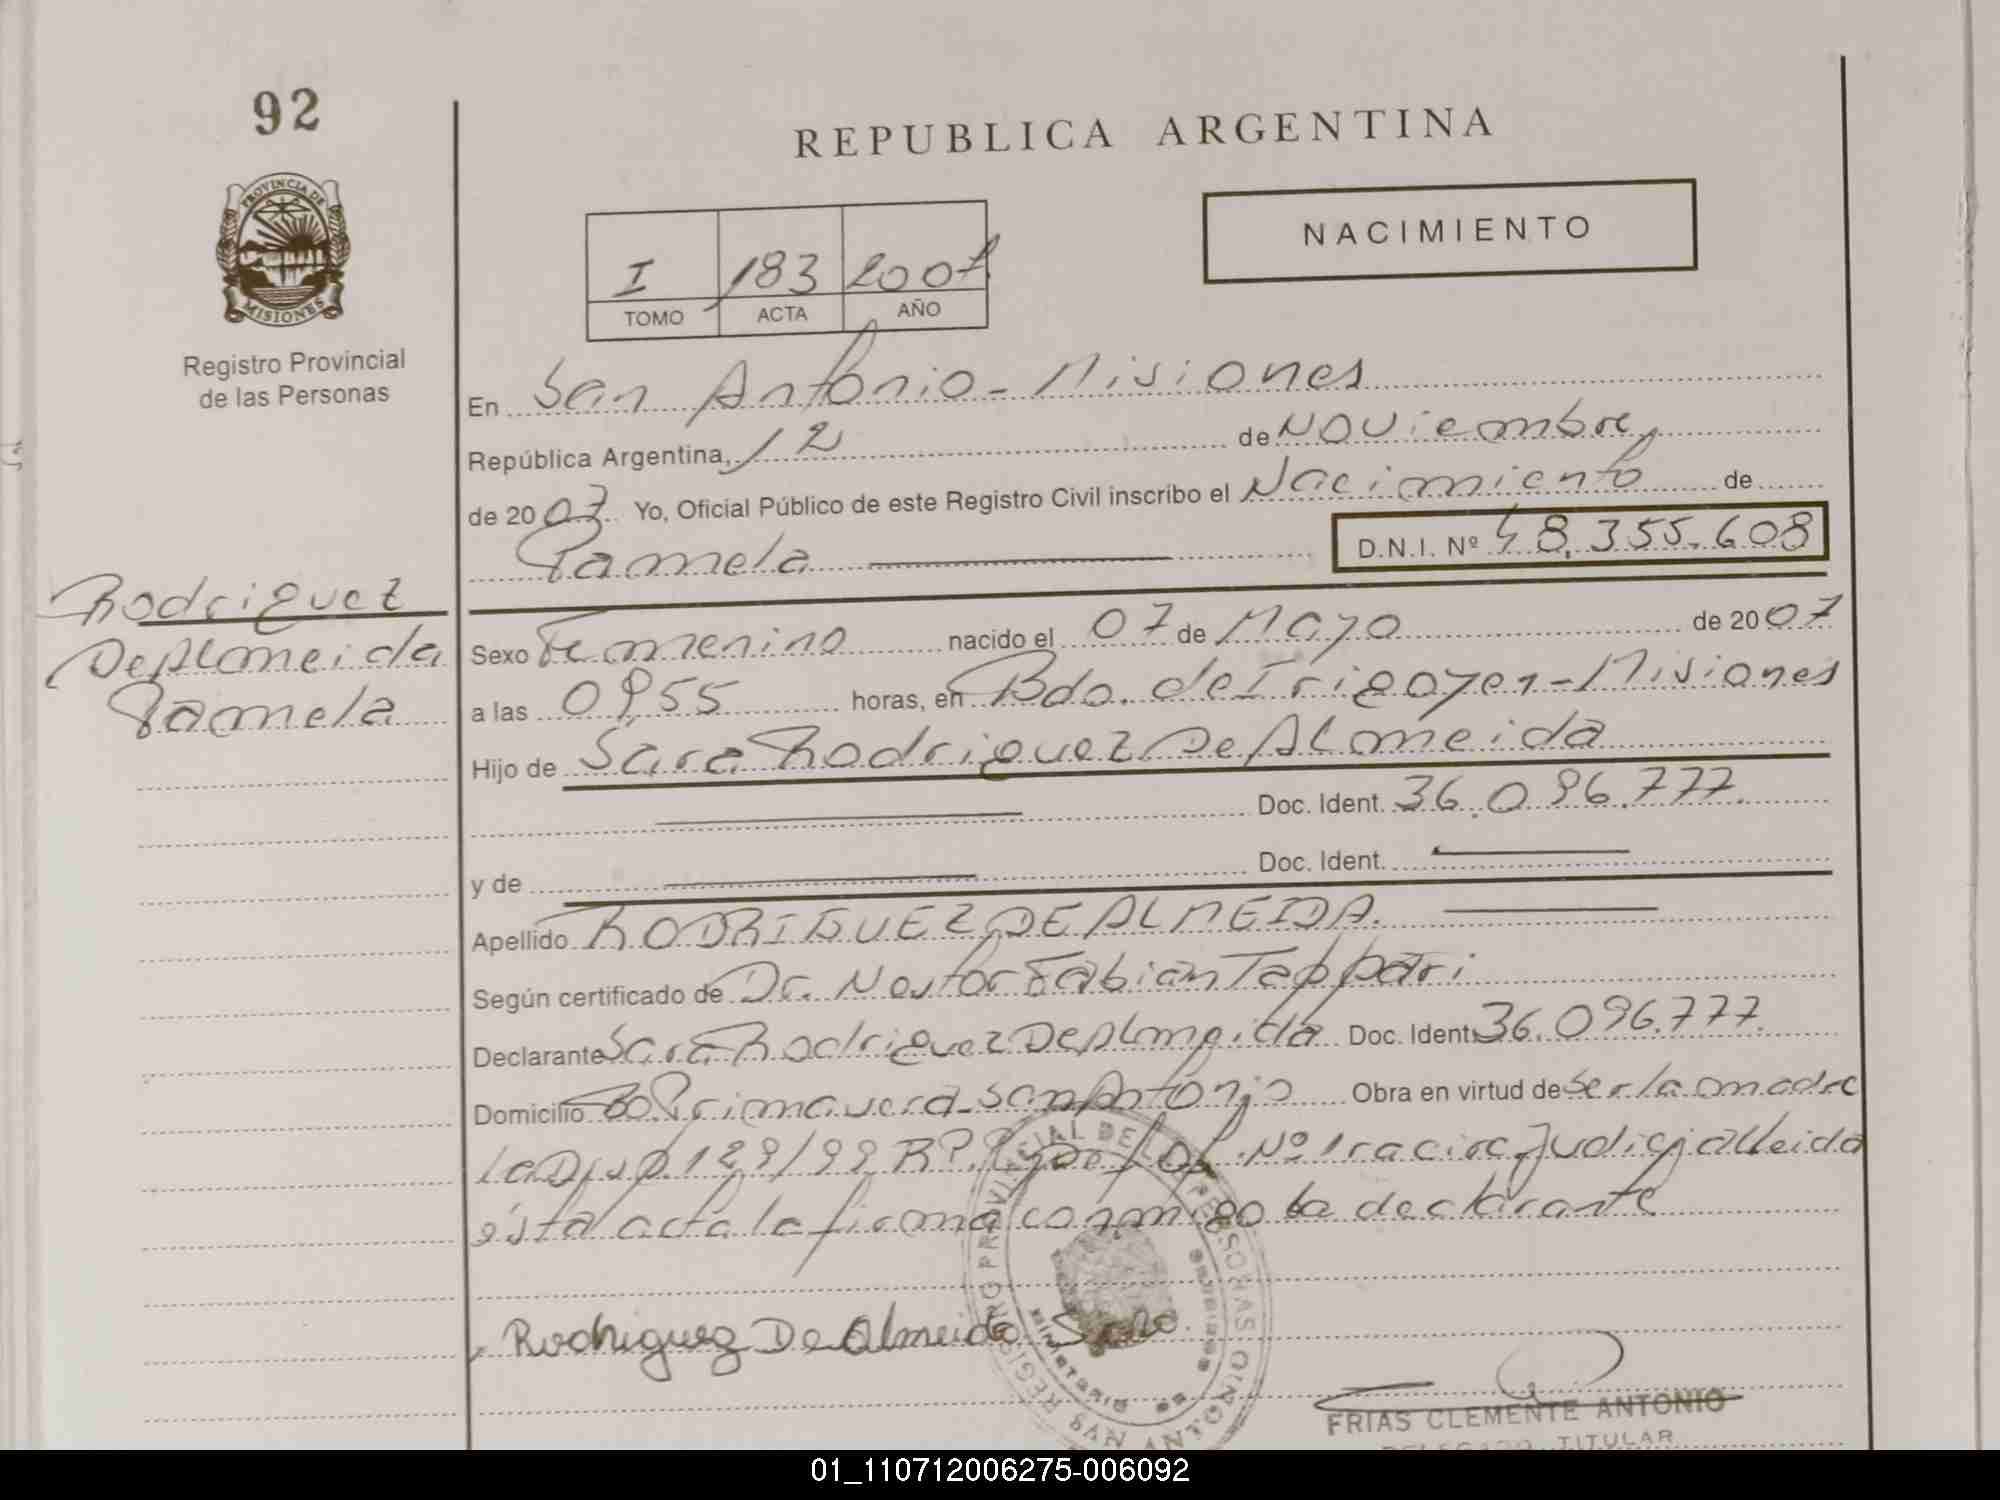 92
REPUBLICA ARGENTINA
NACIMIENTO
I 183 2007
TOMO ACTA AÑO
PROVINCIA DE
MISIONES
Registro Provincial
de las Personas
En San Antonio - Misiones
República Argentina, 12 de Noviembre
de 2007 Yo, Oficial Público de este Registro Civil inscribo el Nacimiento de
Pamela D.N.I. Nº 48.355.608
Rodriguez
De Almeida
Pamela
Sexo Femenino nacido el 07 de Mayo de 2007
a las 0955 horas, en Bdo. de Irigoyen - Misiones
Hijo de Sara Rodriguez De Almeida
Doc. Ident. 36.096.777.
y de Doc. Ident.
Apellido RODRIGUEZ DE ALMEIDA.
Según certificado de Dr. Nestor Fabian
Declarante Sara Rodriguez De Almeida Doc. Ident. 36.096.777.
Domicilio Bº Primavera - San Antonio Obra en virtud de ser la madre
La Disp. 129/99 R.P. Nº 1ra circ Judicial leida
ésta acta la firma conmigo la declarante
Rodriguez De Almeida Sara
REGISTRO PROVINCIAL DE LAS PERSONAS
MINISTERIO DE
FRIAS CLEMENTE ANTONIO
DELEGADO TITULAR
01_110712006275-006092